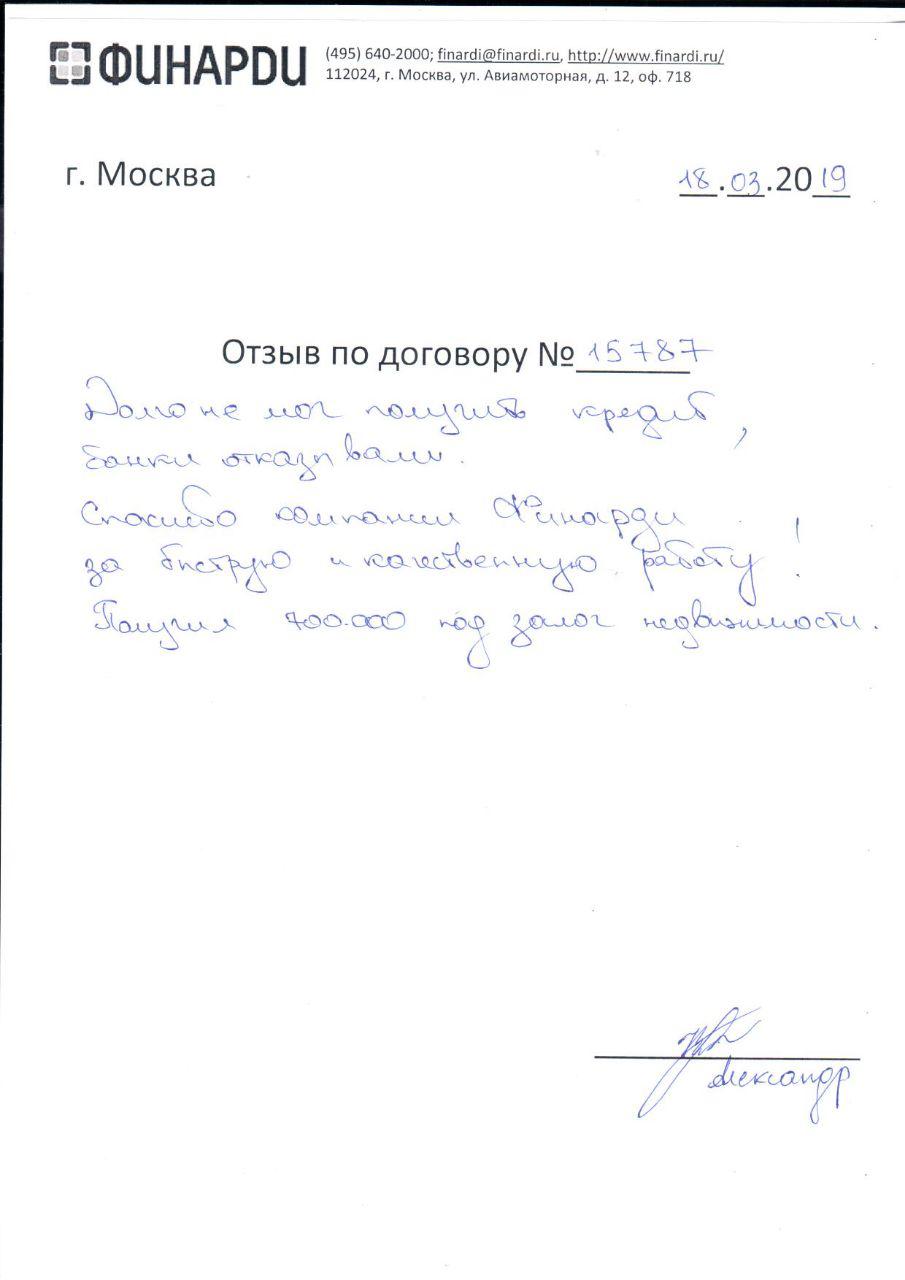 ФИНАРДИ
(495) 640-2000; finardi@finardi.ru, http://www.finardi.ru/
112024, г. Москва, ул. Авиамоторная, д. 12, оф. 718
г. Москва
18.03.2019
Отзыв по договору № 15787
Долго не мог получить кредит,
банки отказывали.
Спасибо компании Финарди
за быструю и качественную работу!
Получил 700.000 под залог недвижимости.
Александр